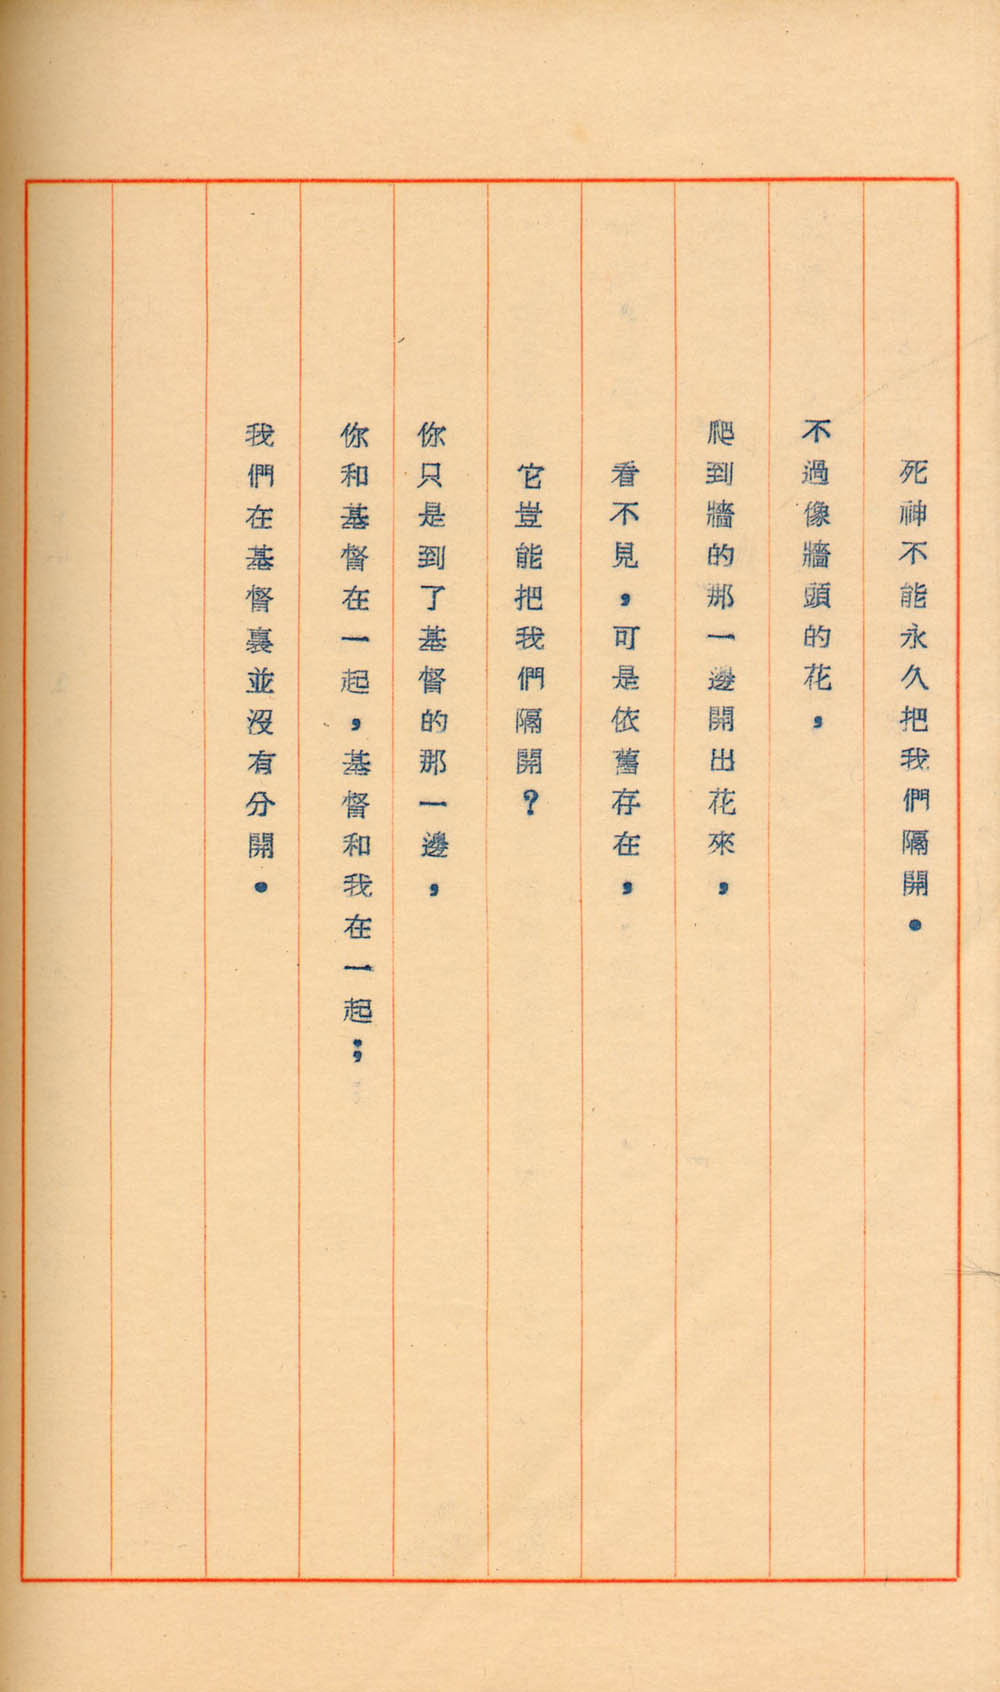 死神不能永久把我們隔開．
不過像牆頭的花，
爬到牆的那一邊開出花來，
看不見，可是依舊存在，
它豈能把我們隔開？
你只是到了基督的那一邊，
你和基督在一起，基督和我在一起；
我們在基督裏並沒有分開．